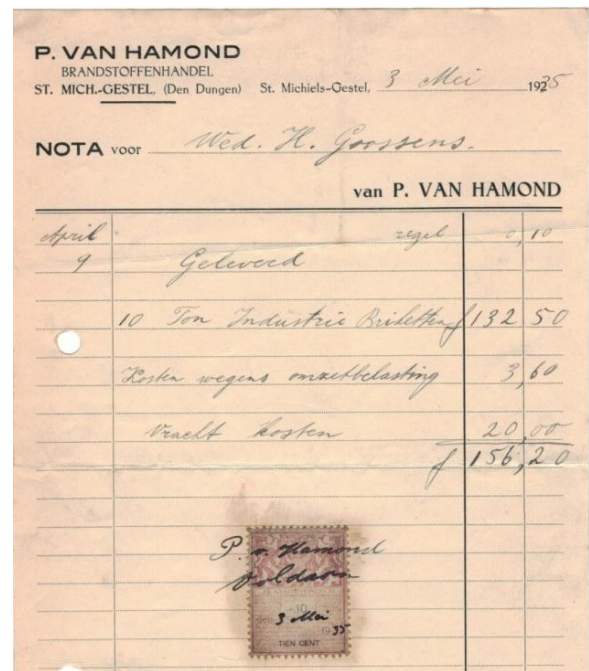 P. VAN HAMOND
BRANDSTOFFENHANDEL
ST. MICH.-GESTEL, (Den Dungen) St. Michiels-Gestel, 3 Mei 1935
NOTA voor Wed. H. Goossens.
van P. VAN HAMOND
April zegel 0,10
9 Geleverd
10 Ton Industrie Briketten f 132 50
Kosten wegens omzetbelasting 3,60
Vracht kosten 20,00
f 156,20
P. v. Hamond
Voldaan
10
den 3 Mei
1935
TIEN CENT